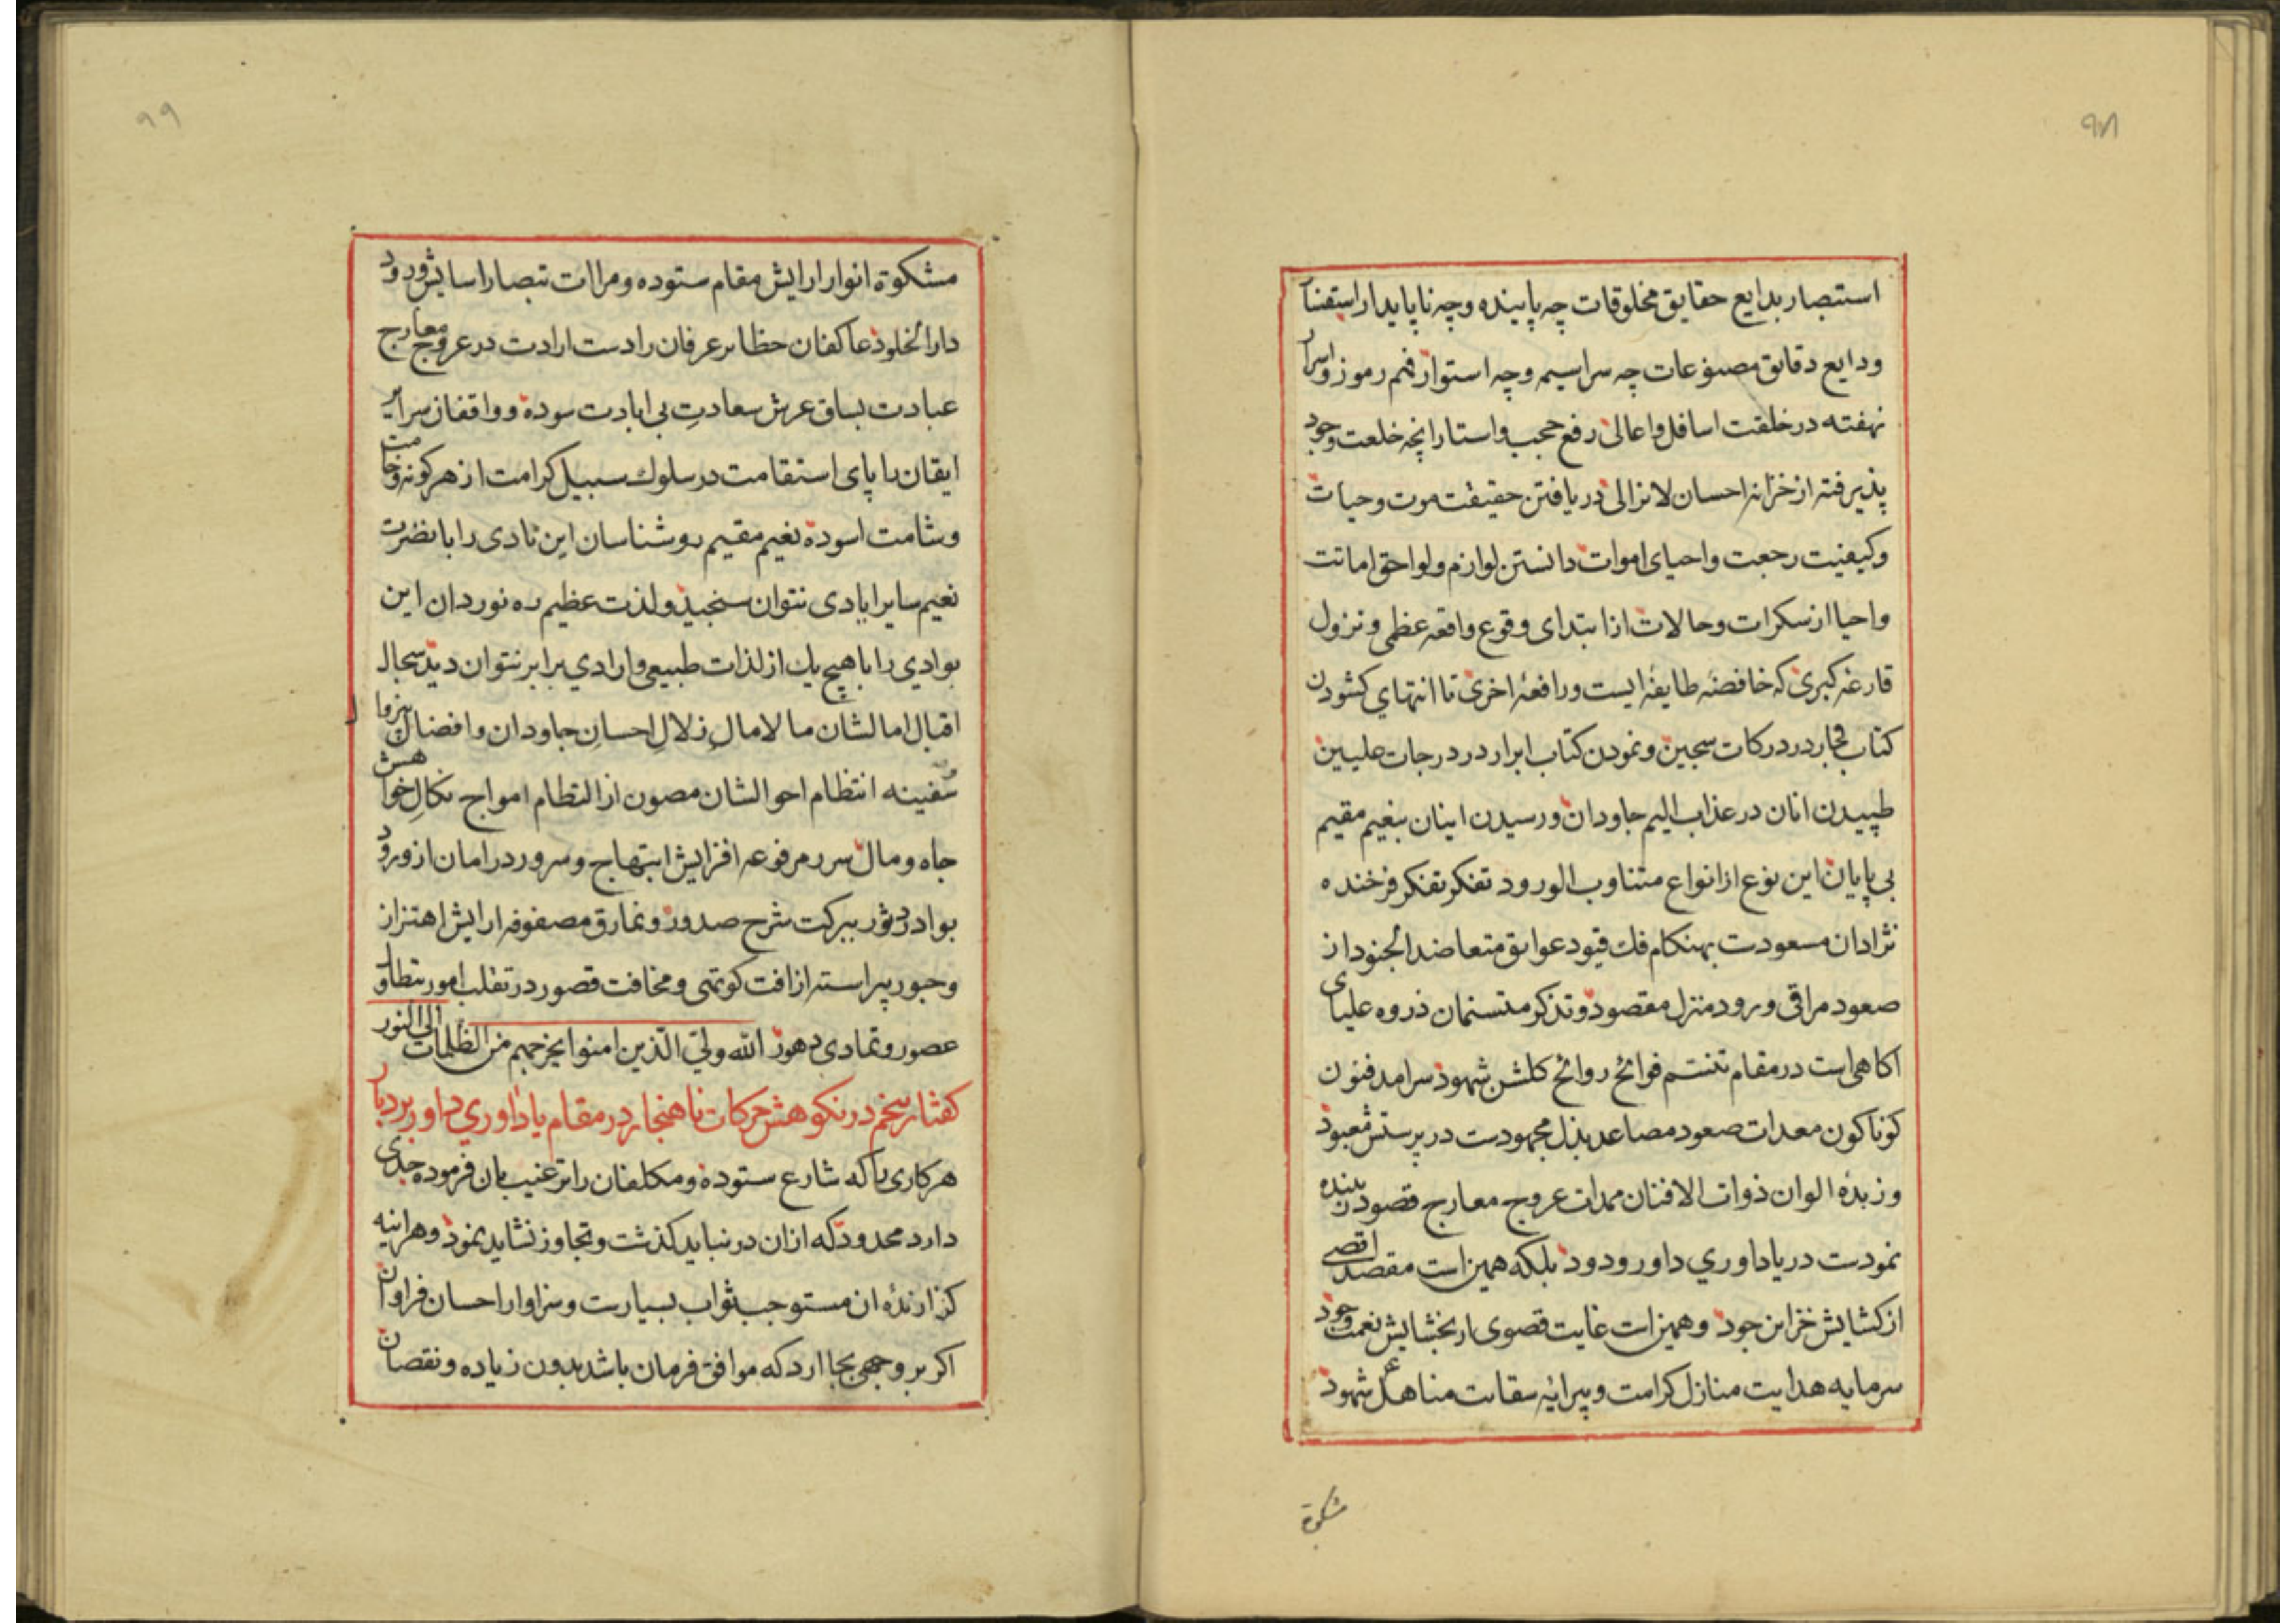 ۹۸
استبصار بدایع حقایق مخلوقات چه پاینده وچه ناپایدار استفنآ
ودایع دقایق مصنوعات چه سراسیمه وچه استوار فهم رموز واسرار
نهفته در خلقت اسافل واعالی رفع حجب واستار انچه خلعت وجود
پذیرفته از خزانه احسان لایزالی دریافتن حقیقت موت وحیات
وکیفیت رجعت واحیای اموات دانستن لوازم ولواحق اماتت
واحیا از سکرات وحالات از ابتدای وقوع واقعه عظمی ونزول
قارعه کبری که خافضه طایفهٔ ایست ورافعهٔ اخری تا انتهای کشودن
کتاب فجار در درکات سجین ونمودن کتاب ابرار در درجات علیین
طپیدن انان در عذاب الیم جاودان ورسیدن اینان بنعیم مقیم
بی پایان این نوع از انواع متناوب الورود تفکر تفکر فرخنده
نژادان مسعودت بهنکام فك قیود عوایق متعاضد الجنود از
صعود مراقی ورود منزل مقصود وتذکر متسنمان ذروه علیای
اکاهی است در مقام تنسم فوائح روائح کلشن شهود سرامد فنون
کوناکون معدات صعود مصاعد بذل مجهودست در پرستش معبود
وزبدهٔ الوان ذوات الافنان ممدات عروج معارج قصود بنده
نمودست در یاداوری داور ودود بلکه همین است مقصد اقصی
از کشایش خزاین جود وهمین است غایت قصوی از بخشایش نعمت وجود
سرمایه هدایت منازل کرامت وپیرایه سقایت مناهل شهود
مشکوة
۹۹
مشکوة انوار ارایش مقام ستوده ومراات تبصار اسایش ورود
دار الخلود عاکفان حظایر عرفان را دست ارادت در عروج معارج
عبادت بساق عرش سعادتِ بی ابادت سوده وواقفان سرایر
ایقان را پای استقامت در سلوك سبیل کرامت از هر کونه وخامت
وشامت اسوده نعیم مقیم روشناسان این نادی را با نضرت
نعیم سایر ایادی نتوان سنجید ولذت عظیم ره نوردان این
بوادی را با هیچ یك از لذات طبیعی وارادی برابر نتوان دید سجال
اقبال امالشان مالامالِ زلالِ احسانِ جاودان وافضال
سفینه انتظام احوالشان مصون از التطام امواج نکالِ خواهش
جاه ومال سرر مرفوعه افزایش ابتهاج وسرور در امان از ورود
بوادر ثور ببرکت شرح صدور ونمارق مصفوفه ارایش اهتزاز
وحبور پیراسته از افت کوتهی ومخافت قصور در تقلب امور بتطاول
عصور وتمادی دهور الله ولیّ الّذین امنوا یخرجهم من الظلمات الی النور
کفتار پنجم در نکوهش حرکات ناهنجار در مقام یاداوری داور بردبار
هر کاری را که شارع ستوده ومکلفان را ترغیب بان فرموده حدی
دارد محدود که ازان در نباید کذشت وتجاوز نشاید نمود وهراینه
کزارندهٔ ان مستوجب ثواب بسیارست وسزاوار احسان فراوان
اکر بر وجهی بجا ارد که موافق فرمان باشد بدون زیاده ونقصان